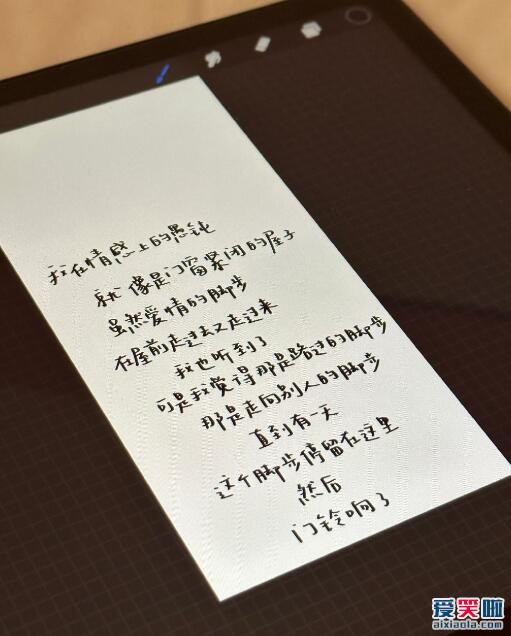 我在情感上的愚钝
就像是门窗紧闭的屋子
虽然爱情的脚步
在屋前走过去又走过来
我也听到了
可是我觉得那是路过的脚步
那是走向别人的脚步
直到有一天
这个脚步停留在这里
然后
门铃响了
爱笑啦
aixiaola.com